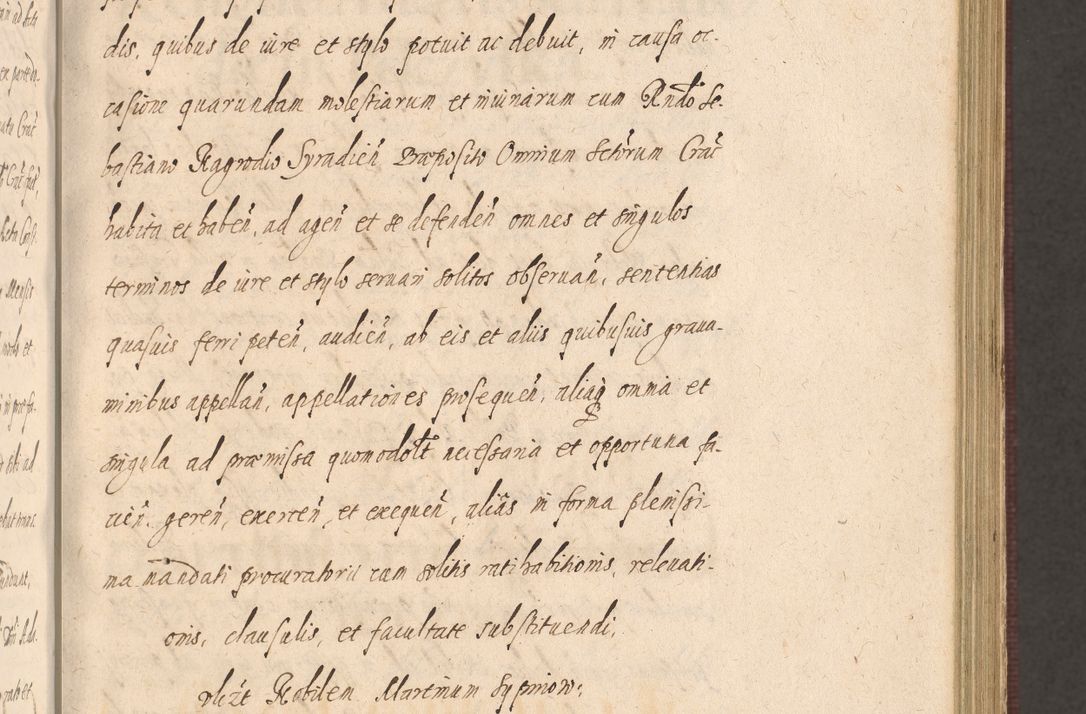 dis, quibus de iure et stylo potuit ac debuit, in causa oc-
casione quarundam molestiarum et iniuriarum cum Rndo Se-
bastiano Nagrodio Syradien Præposito Omnium Sctorum Crac
habita et haben, ad agen et se defenden omnes et singulos
terminos de iure et stylo seruari solitos obseruan, sententias
quasuis ferri peten, audien, ab eis et aliis quibusuis graua-
minibus appellan, appellationes prosequen, aliaq omnia et
singula ad præmissa quomodolt necessaria et opportuna fa-
cien. geren, exercen, et exequen, alias in forma plenissi-
ma mandati procuratorii cum solitis ratihabitionis, releuati-
onis, clausulis, et facultate substituendi,
vlizt Nobilem Martinum